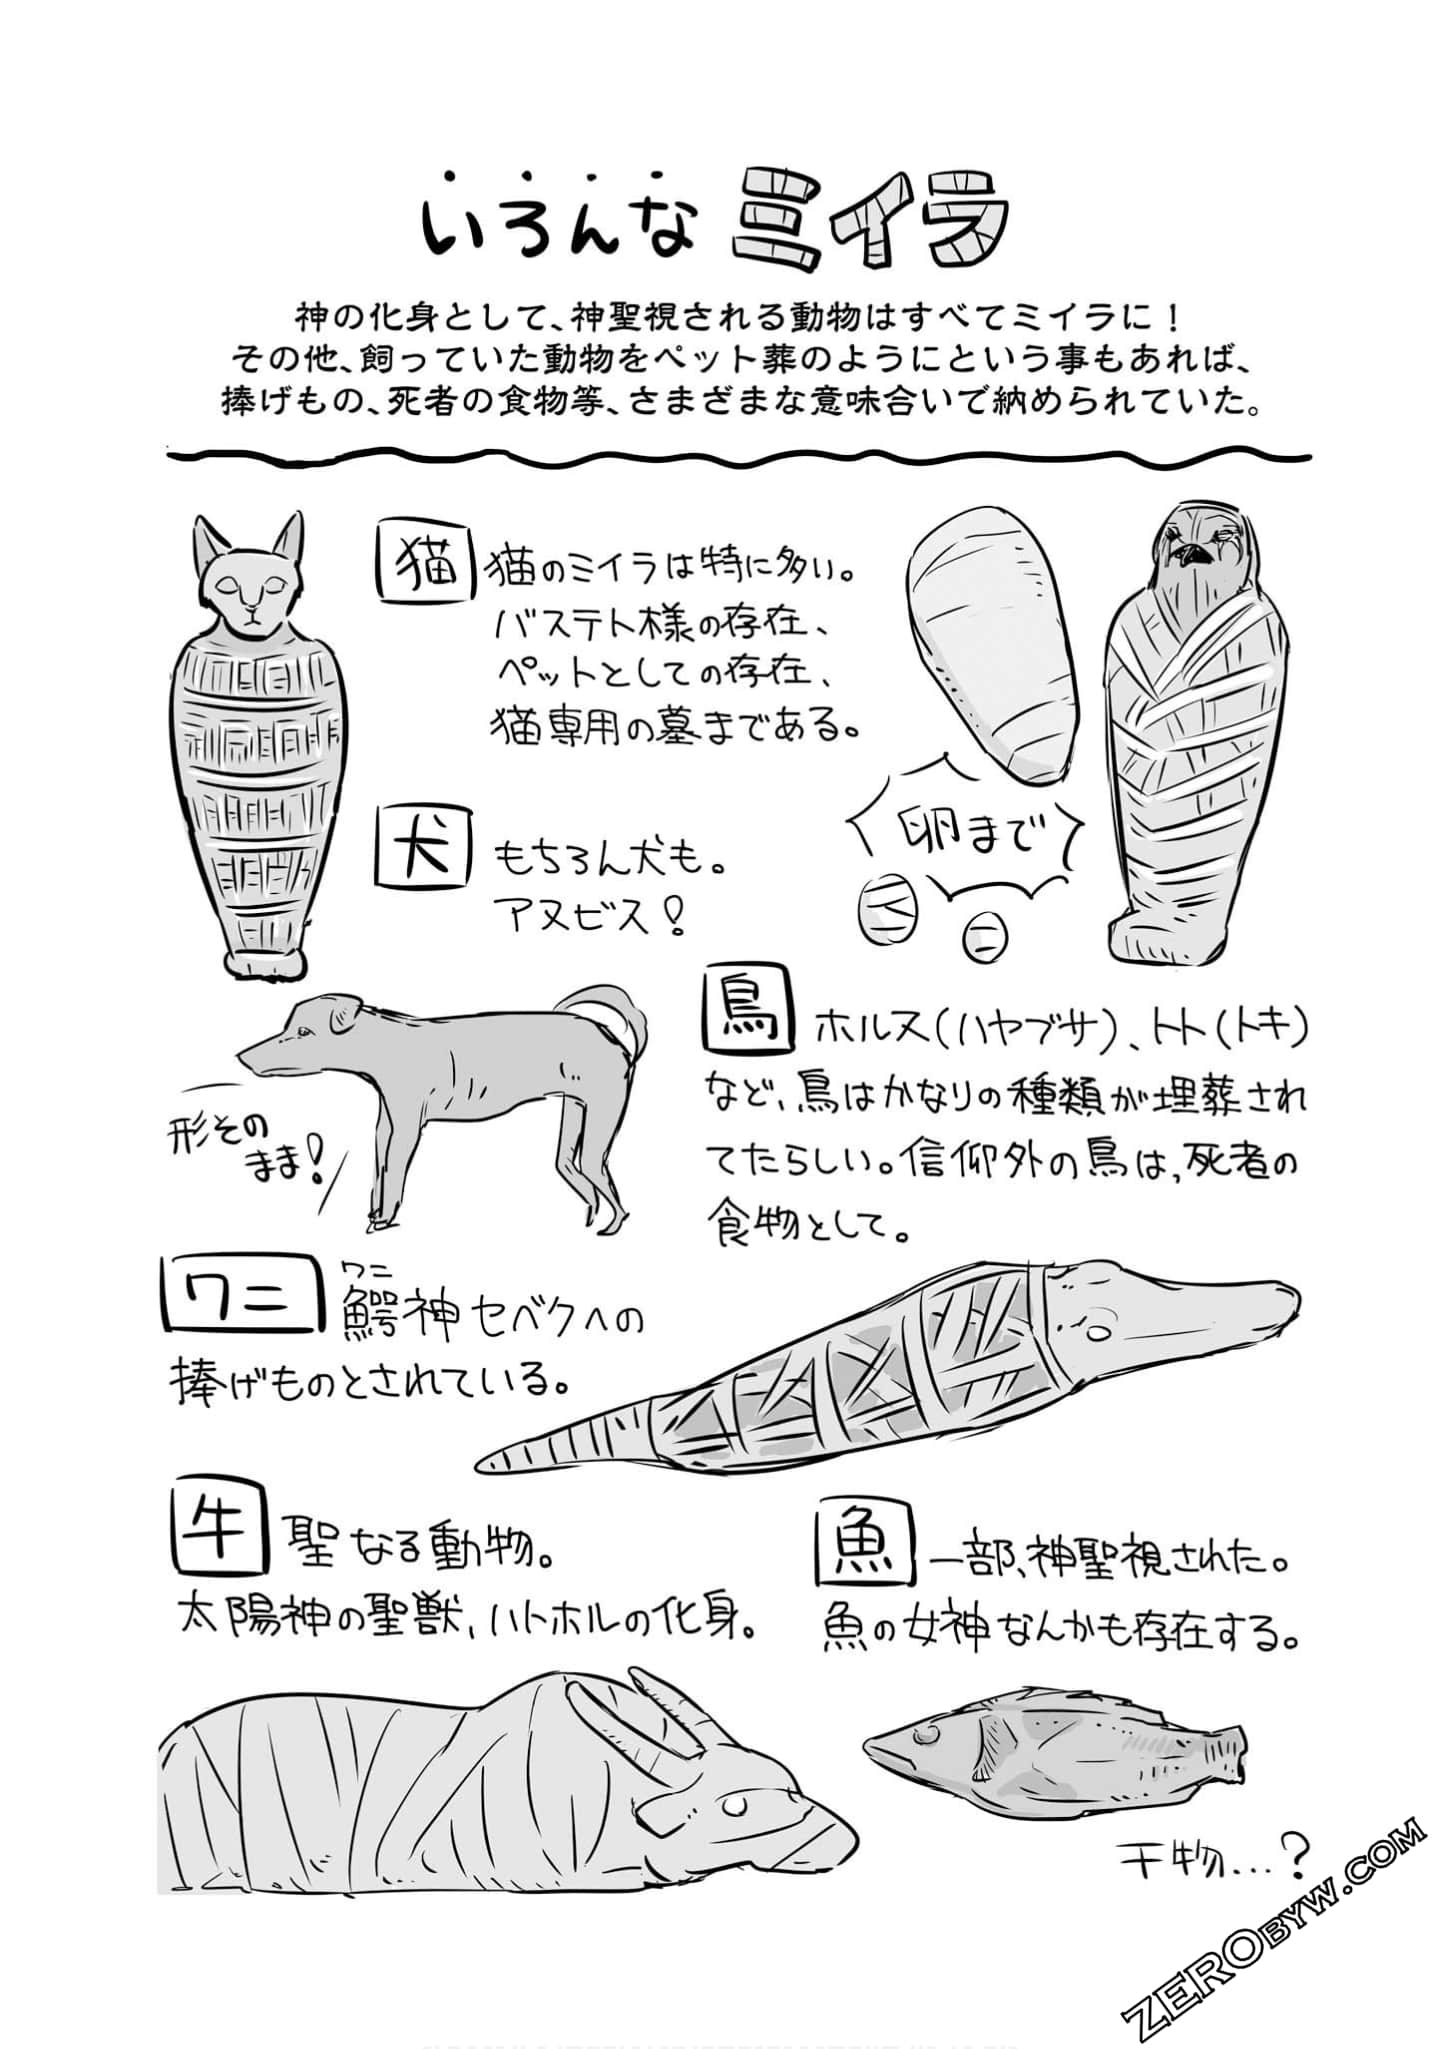 いろんなミイラ
神の化身として、神聖視される動物はすべてミイラに！
その他、飼っていた動物をペット葬のようにという事もあれば、
捧げもの、死者の食物等、さまざまな意味合いで納められていた。
猫 猫のミイラは特に多い。
バステト様の存在、
ペットとしての存在、
猫専用の墓まである。
卵まで
犬 もちろん犬も。
アヌビス！
形その
まま！
鳥 ホルス(ハヤブサ)、トト(トキ)
など、鳥はかなりの種類が埋葬され
てたらしい。信仰外の鳥は、死者の
食物として。
ワニ
ワニ 鰐神セベクへの
捧げものとされている。
牛 聖なる動物。
太陽神の聖獣、ハトホルの化身。
魚 一部、神聖視された。
魚の女神なんかも存在する。
干物…？
ZEROBYW.COM